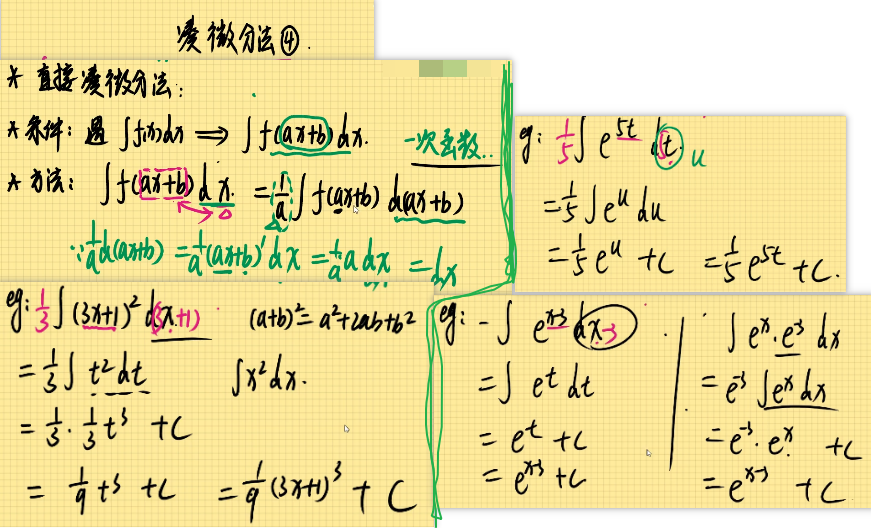 凑微分法④.
* 直接凑微分法:
* 条件: 遇 ∫f(x)dx ⟹ ∫f(ax+b)dx. 一次函数..
* 方法: ∫f(ax+b)dx. = 1/a ∫f(ax+b) d(ax+b)
∵ 1/a d(ax+b) = 1/a (ax+b)' dx = 1/a a dx = dx
eg: 1/5 ∫ e^{5t} d5t. u
= 1/5 ∫ e^u du
= 1/5 e^u + C = 1/5 e^{5t} + C.
eg: 1/3 ∫ (3x+1)² d(3x+1) (a+b)² = a²+2ab+b²
= 1/3 ∫ t² dt ∫x²dx.
= 1/3 · 1/3 t³ + C
= 1/9 t³ + C = 1/9 (3x+1)³ + C
eg: - ∫ e^{x-3} dx-3
= ∫ e^t dt
= e^t + C
= e^{x-3} + C
∫ e^x · e^{-3} dx
= e^{-3} ∫ e^x dx
= e^{-3} · e^x + C
= e^{x-3} + C